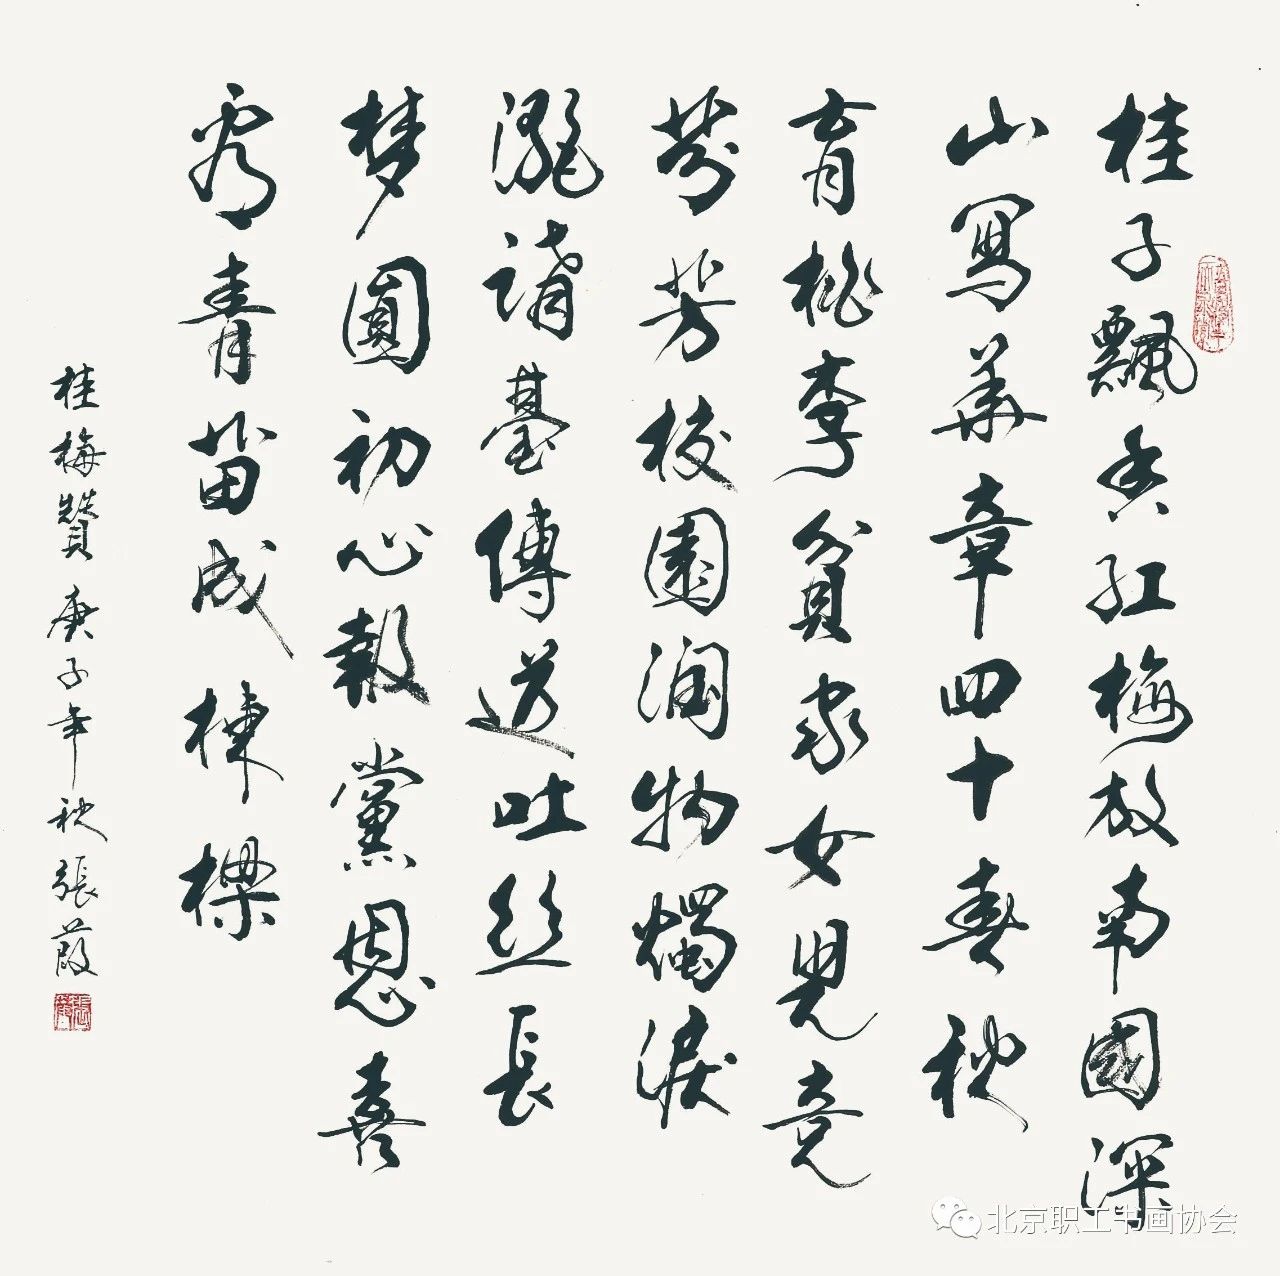 桂子飄香紅梅放南國深
山寫華章四十春秋
育桃李貧家女兒竟
芬芳校園潤物燭淚
灑講臺傳道吐絲長
梦圓初心報黨恩喜
看青苗成棟樑
桂梅贊庚子年秋張葭
北京职工书画协会